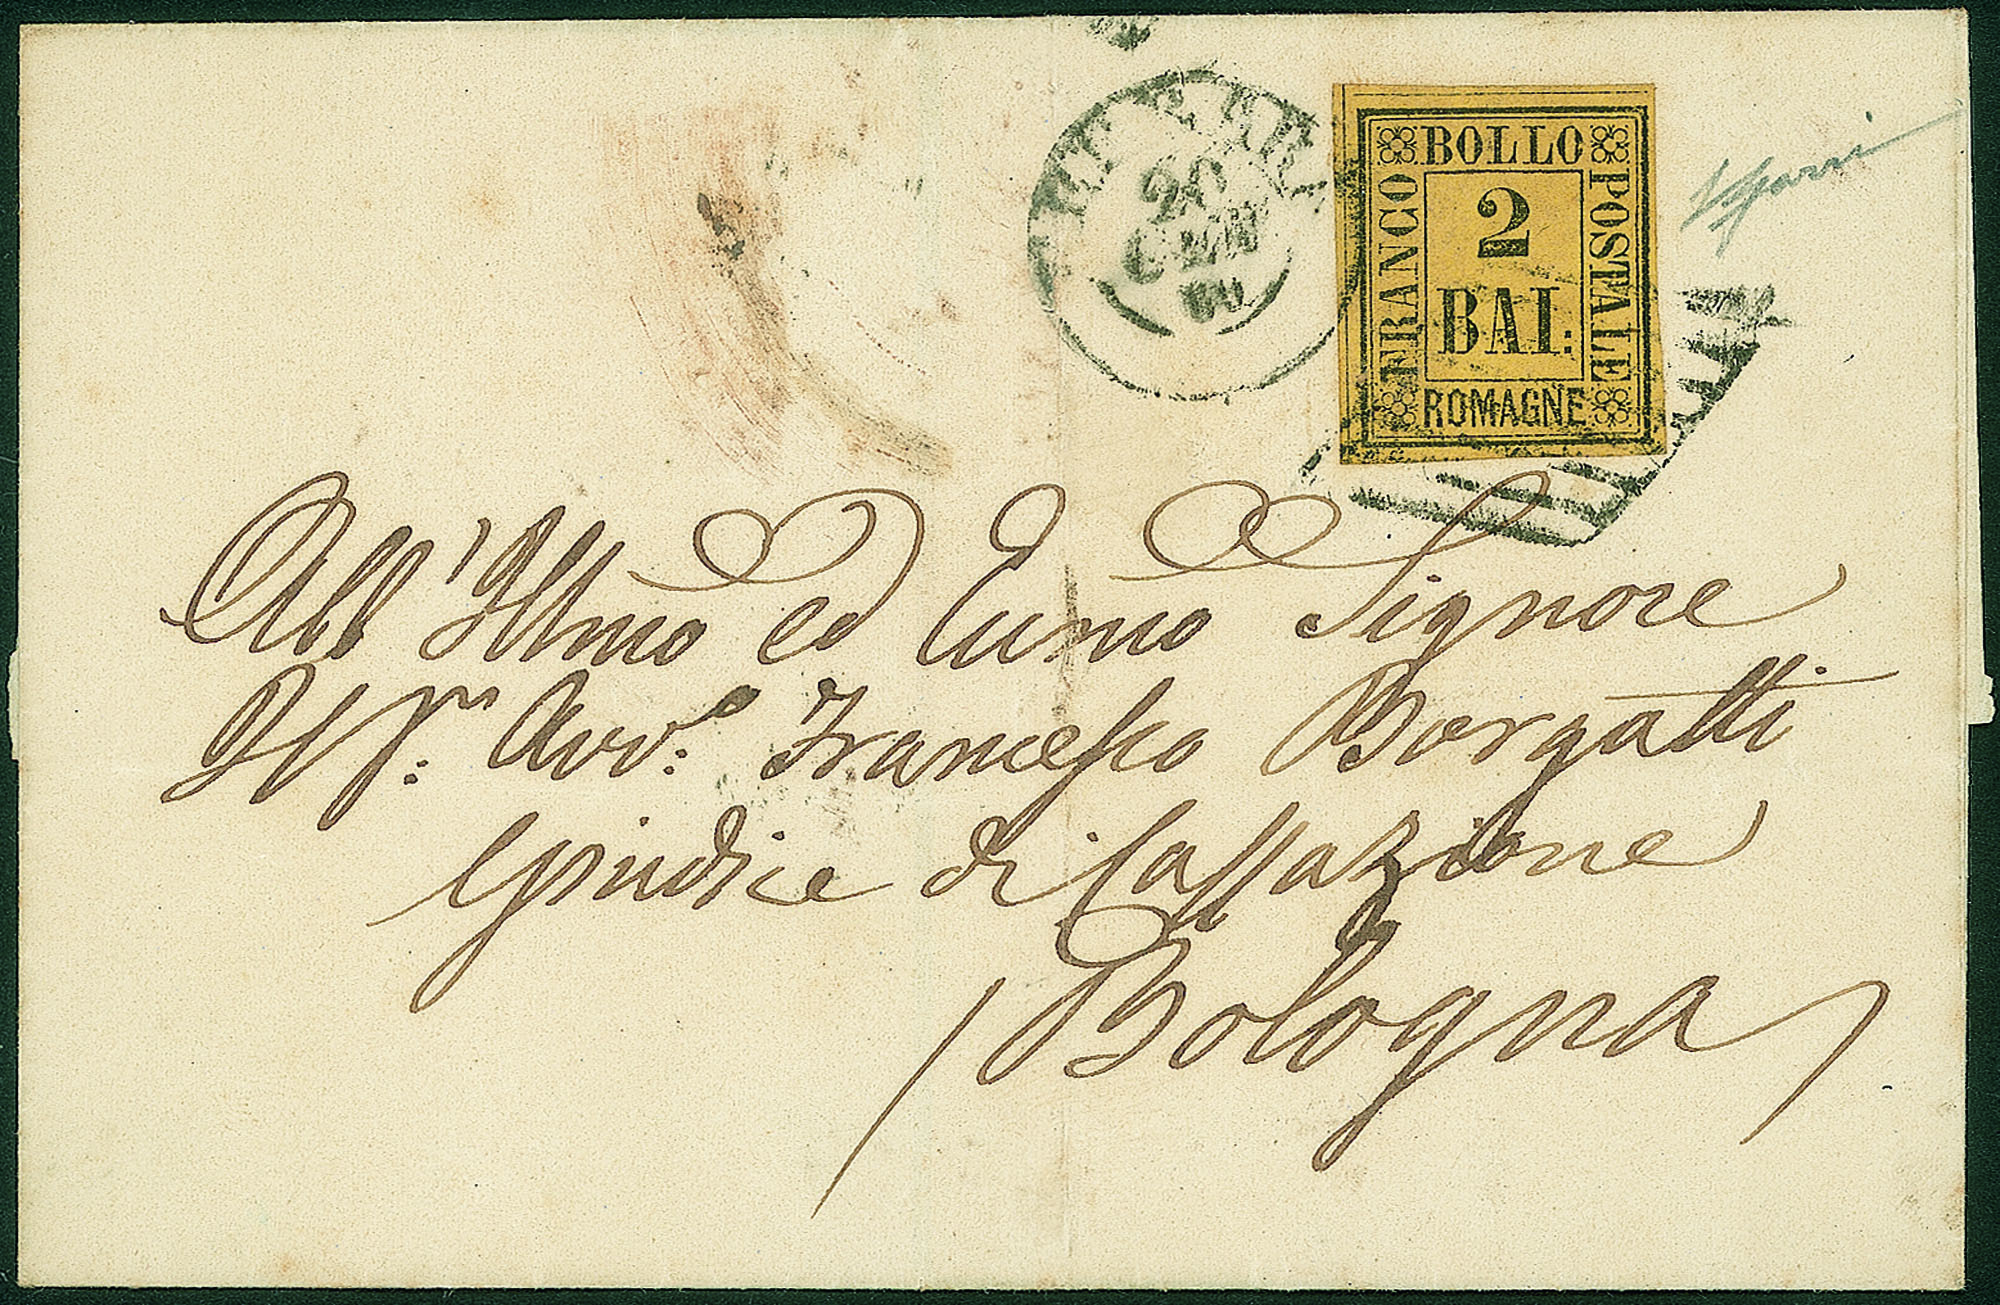 20
GEN
60
FRANCO BOLLO POSTALE
2
BAI:
ROMAGNE
All'Illmo ed Eccmo Signore
Sigr. Avv.o Francesco Borgatti
Giudice di Cassazione
Bologna